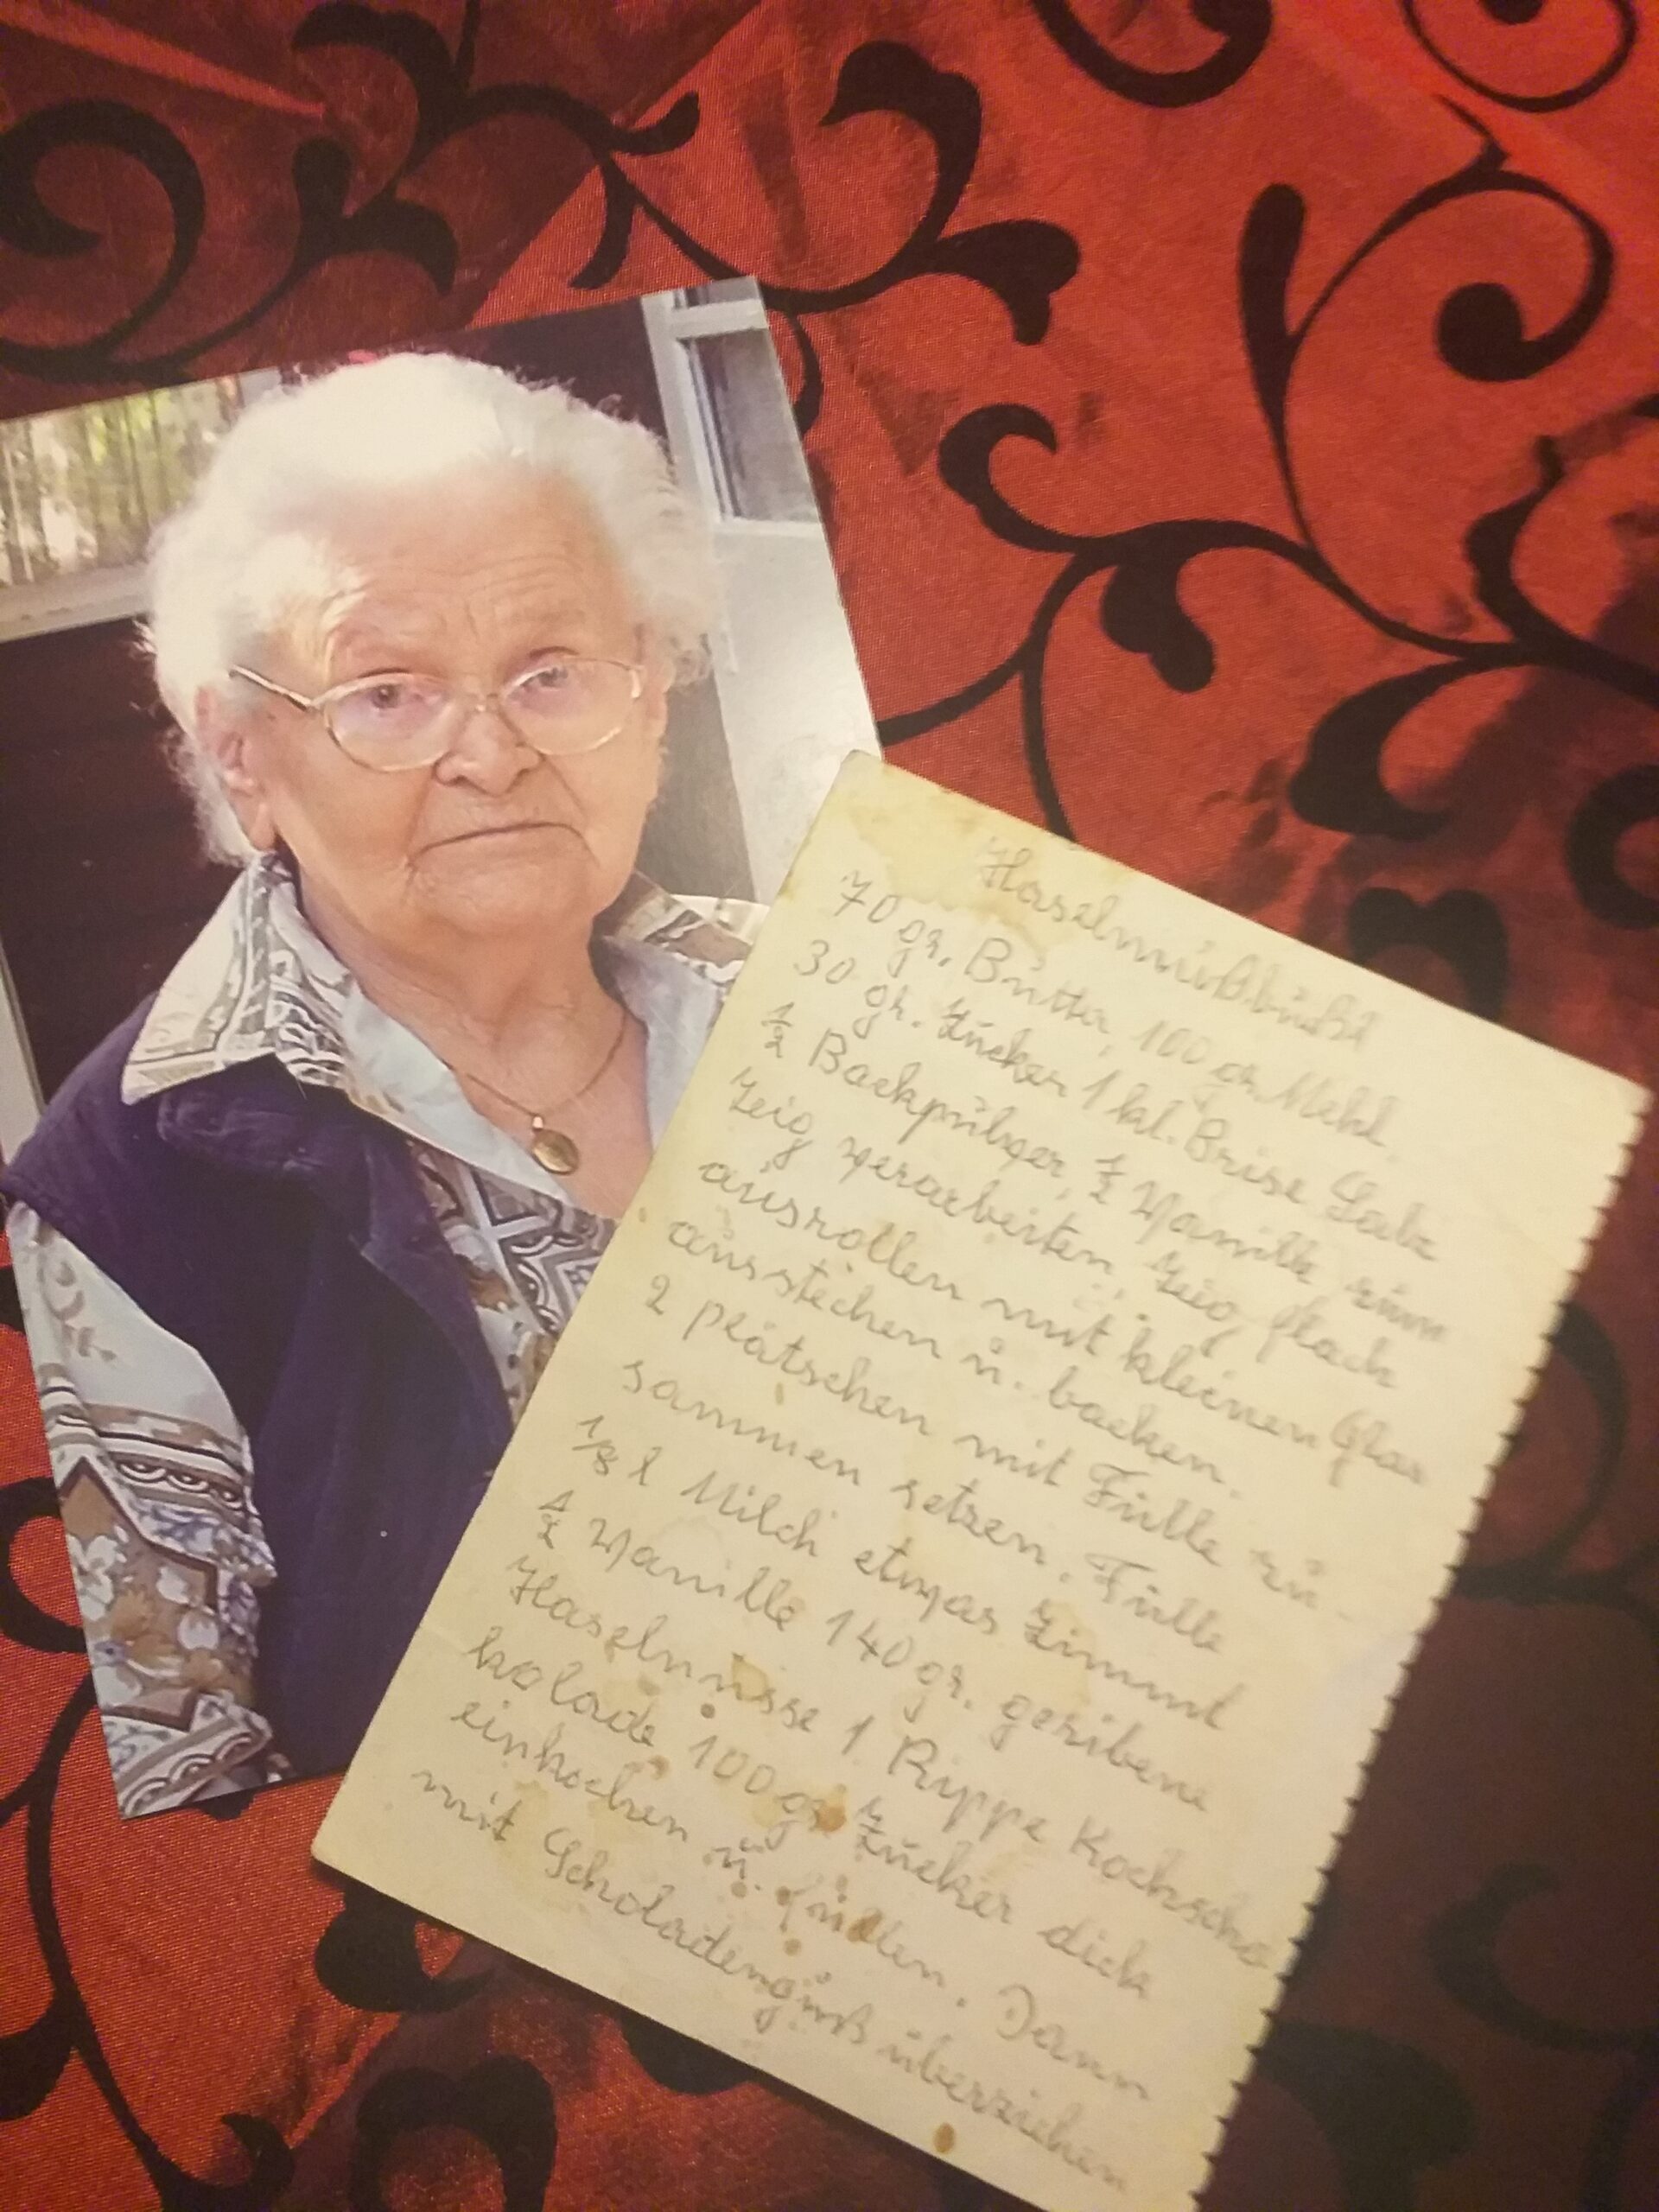 Haselnußbußl
70 gr. Butter, 100 gr. Mehl,
30 gr. Zucker 1 kl. Brise Salz
½ Backpulver, ½ Vanille zum
Teig verarbeiten, Teig flach
ausrollen mit kleinen Glas
ausstechen u. backen.
2 plätschen mit Fülle zu-
sammen setzen. Fülle
⅛ l Milch etwas Zimmt
½ Vanille 140 gr. geribene
Haselnüsse 1 Rippe Kochscho
kolade 100 gr. Zucker dick
einkochen u. füllen. Dann
mit Scholadenguß überziehen